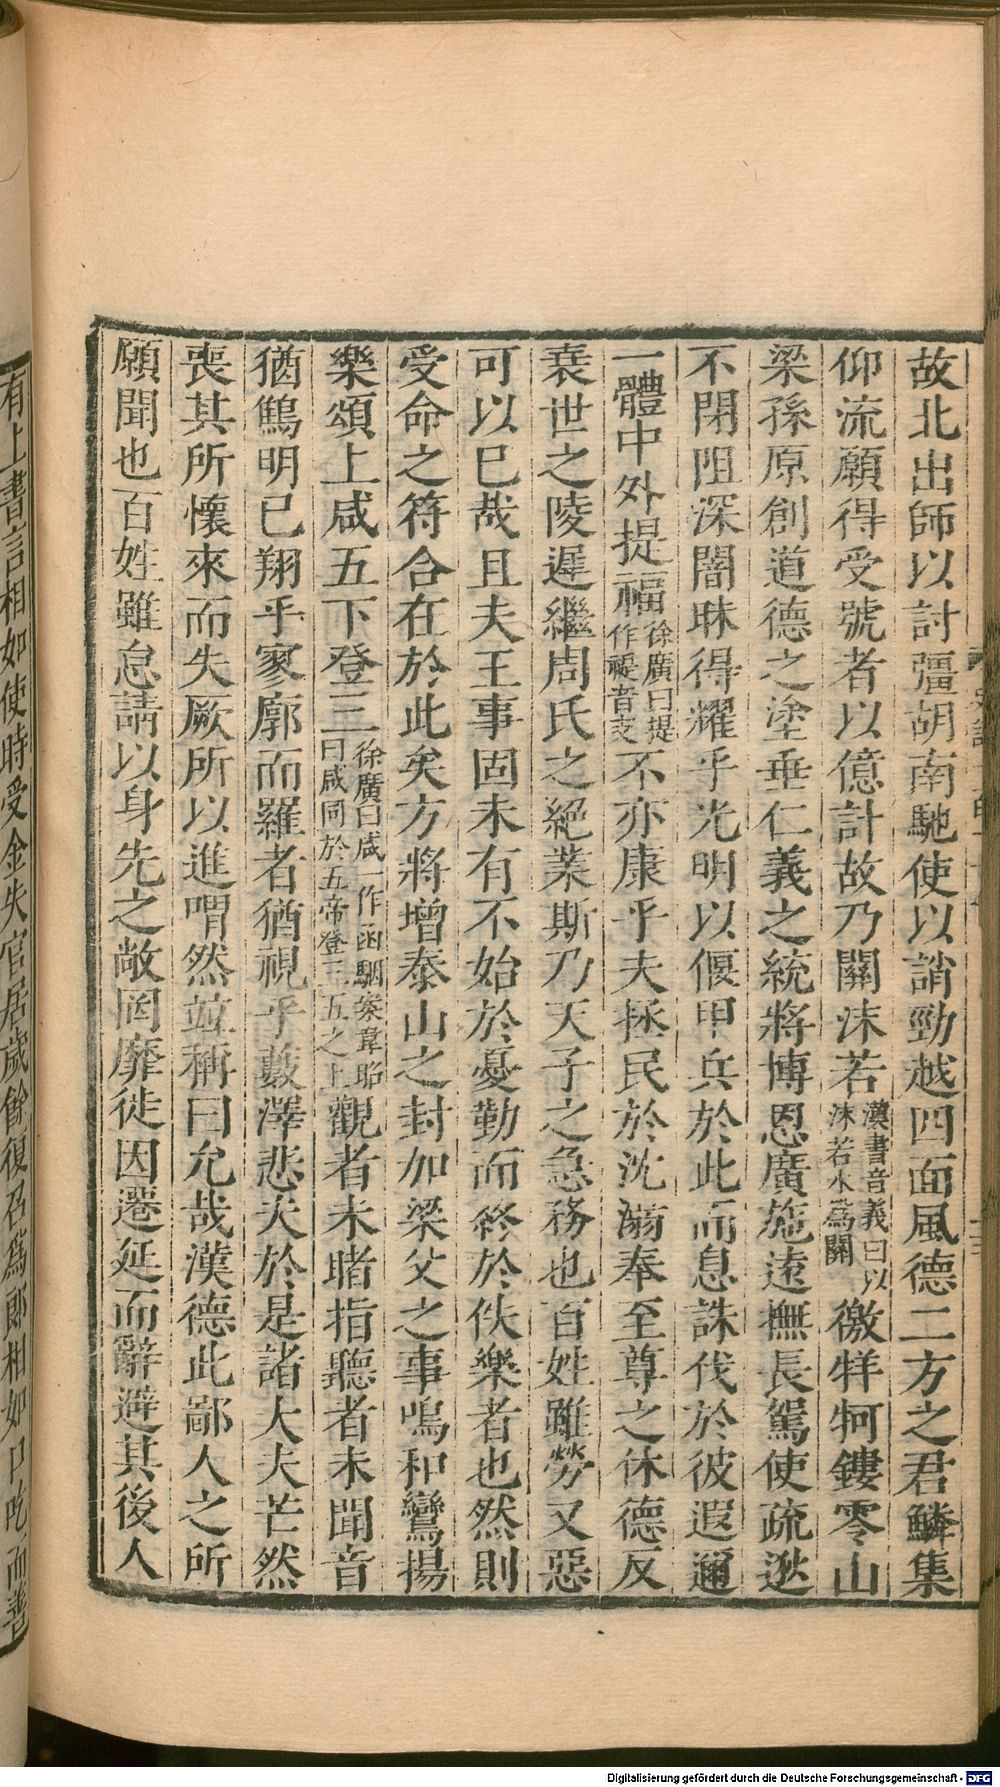 故北出師以討彊胡南馳使以誚勁越四面風德二方之君鱗集
仰流願得受號者以億計故乃關沫若漢書音義曰以沫若水爲關徼牂牁鏤零山
梁孫原創道德之塗垂仁義之統將博恩廣施遠撫長駕使疏逖
不閉阻深闇昧得耀乎光明以偃甲兵於此而息誅伐於彼遐邇
一體中外提福徐廣曰提作禔音支不亦康乎夫拯民於沈溺奉至尊之休德反
衰世之陵遲繼周氏之絕業斯乃天子之急務也百姓雖勞又惡
可以已哉且夫王事固未有不始於憂勤而終於佚樂者也然則
受命之符合在於此矣方將增泰山之封加梁父之事鳴和鸞揚
樂頌上咸五下登三徐廣曰咸一作函駰案韋昭曰咸同於五帝登三五之上觀者未睹指聽者未聞音
猶鷦明已翔乎寥廓而羅者猶視乎藪澤悲夫於是諸大夫芒然
喪其所懷來而失厥所以進喟然竝稱曰允哉漢德此鄙人之所
願聞也百姓雖怠請以身先之敞罔靡徙因遷延而辭避其後人
有上書言相如使時受金失官居歲餘復召爲郎相如口吃而善
Digitalisierung gefördert durch die Deutsche Forschungsgemeinschaft - DFG